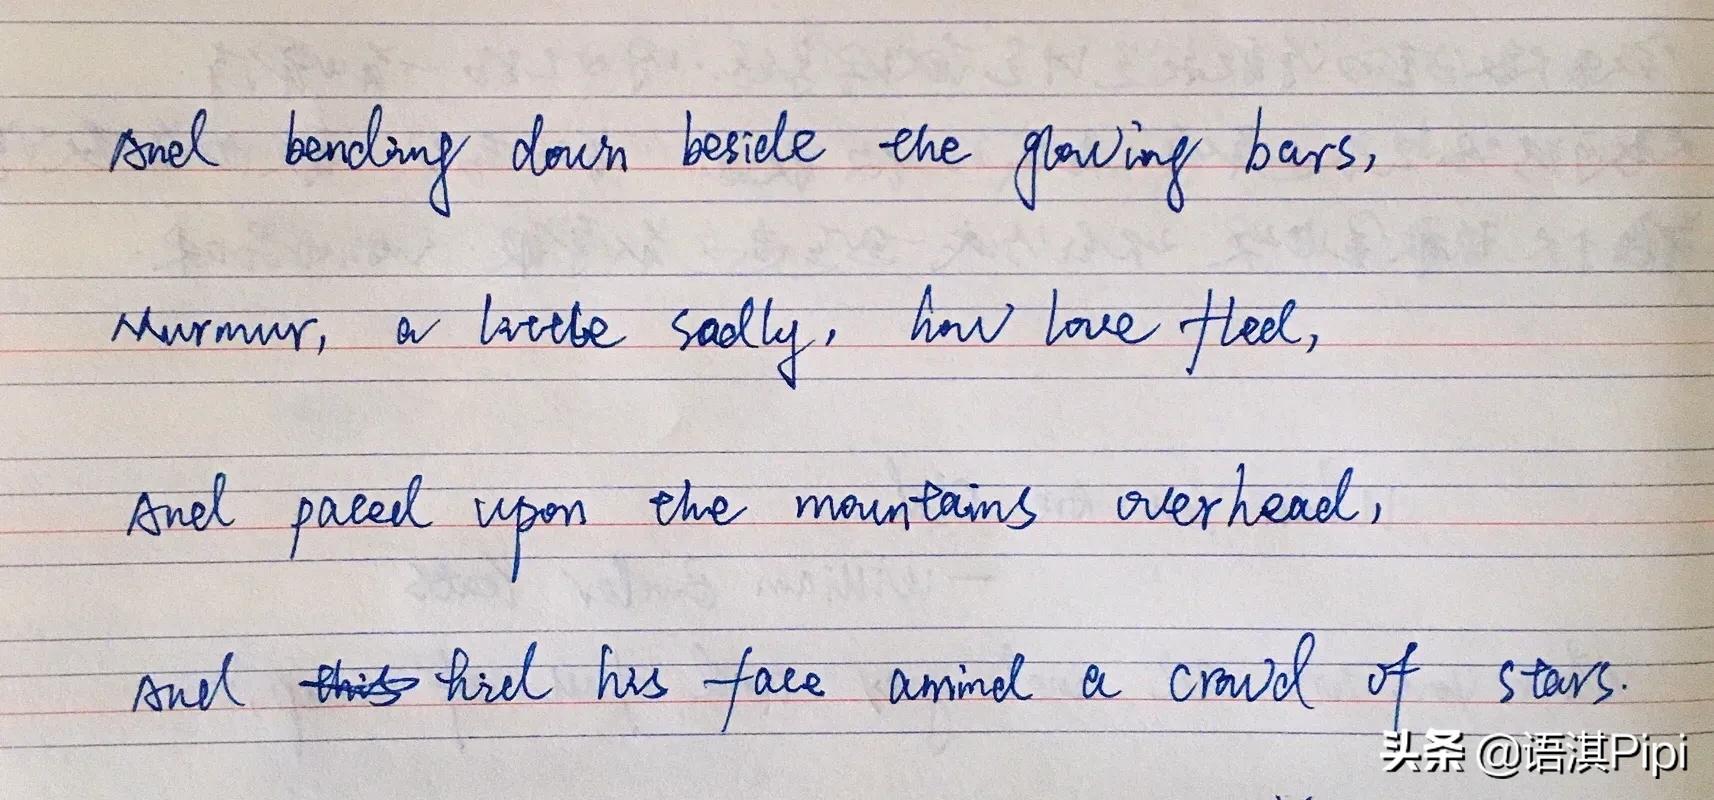 And bending down beside the glowing bars,
Murmur, a little sadly, how love fled,
And paced upon the mountains overhead,
And this hid his face amind a crowd of stars.
头条 @语淇Pipi